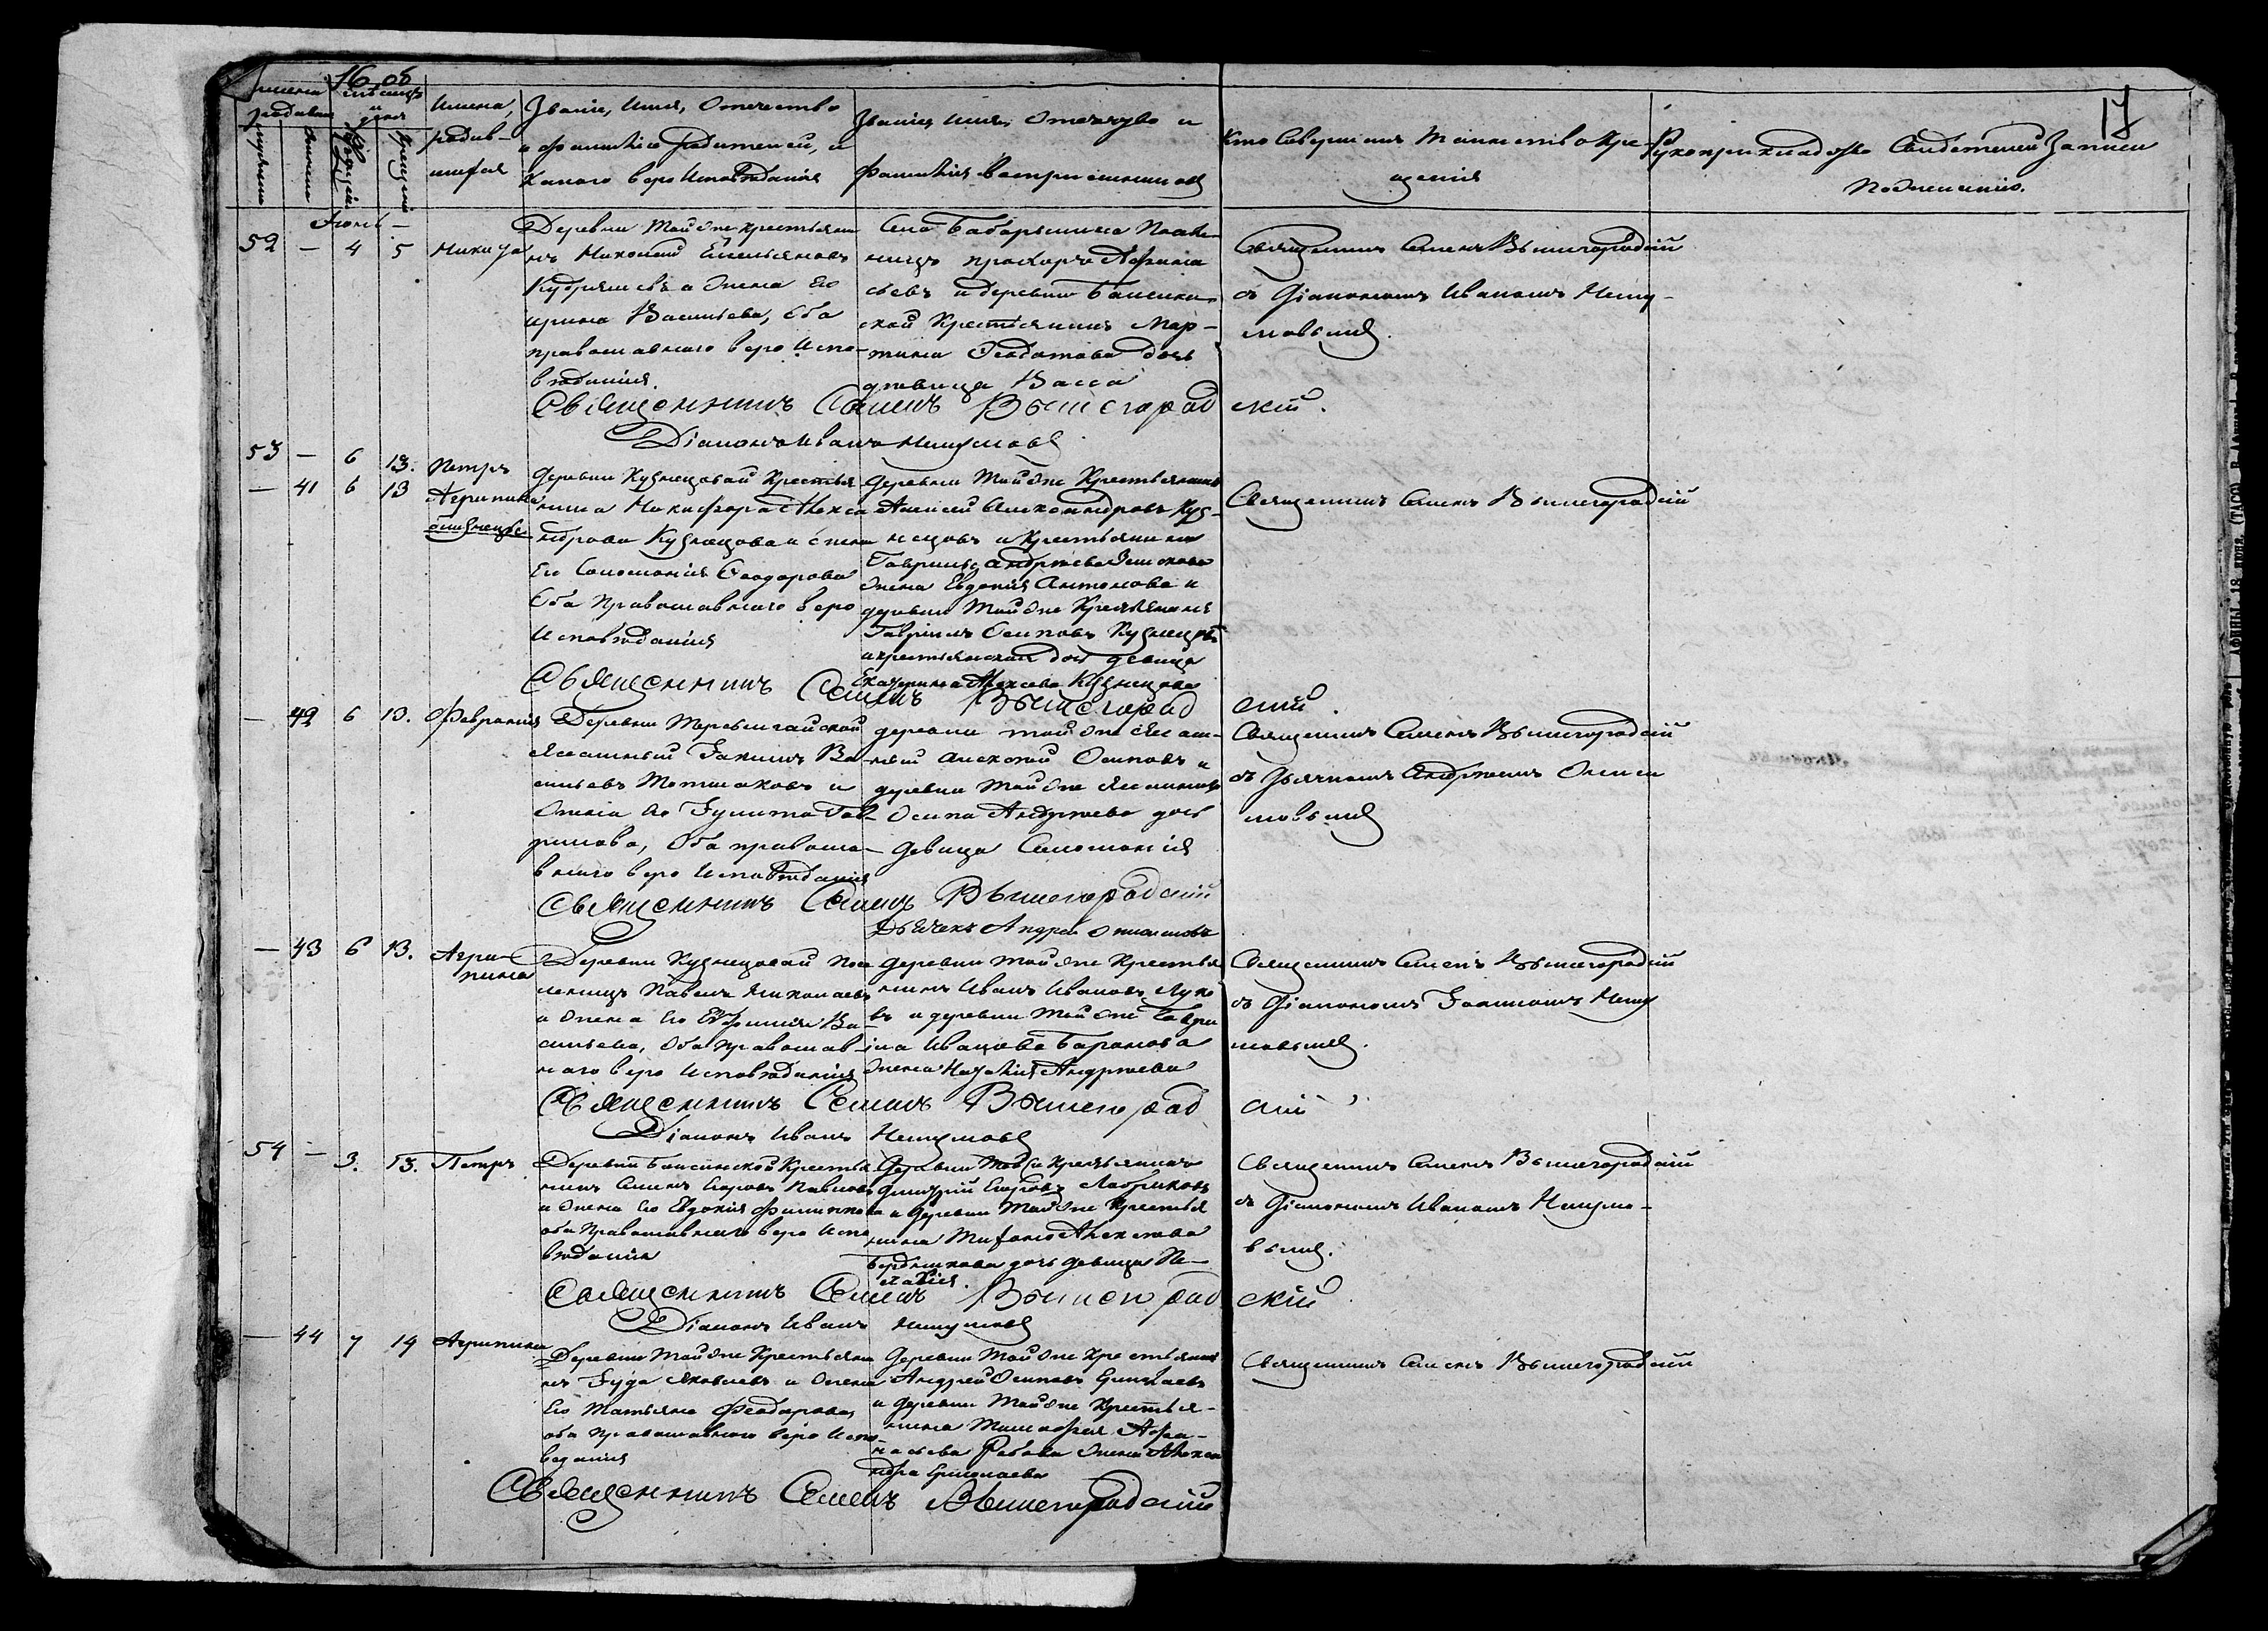 16 об
17
Имена,
родив-
шихся
Званіе, Имя, Отечество
и фамилія родителей, и
Какого вероисповѣданія
Званіе, имя, отечество и
фамилія воспріемниковъ
Кто совершилъ таинство Кре-
щенія
Рукоприкладство свидетелей записи
по желанію.
Іюнь
52 — 4 5 Никита
Деревни той же крестьяни
нъ Николай Емельяновъ
Кудряшевъ и жена его
Ирина Васильева, оба
православнаго вероиспо-
вѣданія.
Села
нецъ Прохоръ Афана
сьевъ и деревни
ской крестьянина Мар-
тина Феодотова дочь
девица Васса
Священникъ Семенъ Вышегородскій
съ Діакономъ Иваномъ Нешу-
мовымъ.
Священникъ Семенъ Вышегородскій.
Діаконъ Иванъ Нешумовъ
53 — 6 13. Петръ
— 41 6 13 Агрипина
близнецы
Деревни Кузнецовой крестья
нина Никифора Алекса
ндрова Кузнецова и жены
Его Соломонія Феодорова
Оба Православнаго веро
Исповѣданія
Деревни той же крестьянинъ
Алексей Александровъ Куз-
нецовъ и крестьянина
Гавріила Андрѣева
жена Евдокія Антонова и
деревни той же крестьянинъ
Гавріилъ Осиповъ Кузнецовъ
и крестьянская дочь девица
Екатерина Алексеева Кузнецова
Священникъ Семенъ Вышегородскій
Священникъ Семенъ Вышегородскій.
— 42 6 13. Февронія
Деревни
Ясашный Іакимъ Ва
сильевъ и
жена его Іулита Гав-
рилова, Оба правосла-
внаго вероисповѣданія
деревни той же Ясаш-
ный Алексей Осиповъ и
деревни той же Ясашнаго
Осипа Андрѣева дочь
девица Соломонія
Священникъ Семенъ Вышегородскій
съ Дьячкомъ Андрѣемъ Они
мовымъ
Священникъ Семенъ Вышегородскій
Дьячекъ Андрей
— 43 6 13. Агри-
пина
Деревни Кузнецовой посе
ленецъ Павелъ Николаевъ
и жена его Евфимія Ва-
сильева, Оба православ-
наго вероисповѣданія
Деревни той же крестья
нинъ Иванъ Ивановъ
въ и деревни той же Гаври
ила Иванова Баранова
жена Наталія Андрѣева
Священникъ Семенъ Вышегородскій
съ Діакономъ Іоанномъ Нешу
мовымъ.
Священникъ Семенъ Вышегородскій
Діаконъ Иванъ Нешумовъ
54 — 3. 13. Петръ
Деревни крестья
нинъ Семенъ Егоровъ Павловъ
и жена его Евдокія Филиппова
оба православнаго вероиспо
вѣданія
Деревни той же крестьянинъ
Дмитрій Егоровъ
и Деревни той же крестья
нина Тифона Алексеева
Бердникова дочь девица Пе-
лагія.
Священникъ Семенъ Вышегородскій
съ Діакономъ Иваномъ Нешумо-
вымъ.
Священникъ Семенъ Вышегородскій
Діаконъ Иванъ Нешумовъ
— 44 7 14 Агрипина
Деревни той же крестьяни
нъ Іуда Яковлевъ и жена
Его Татьяна Феодорова,
оба православнаго вероиспо-
веданія
Деревни той же крестьянинъ
Андрей Осиповъ
и деревни той же крестья-
нина Тимофея Афа-
насьева жена Алекса
ндра Ермолаева
Священникъ Семенъ Вышегородскій
Священникъ Семенъ Вышегородскій